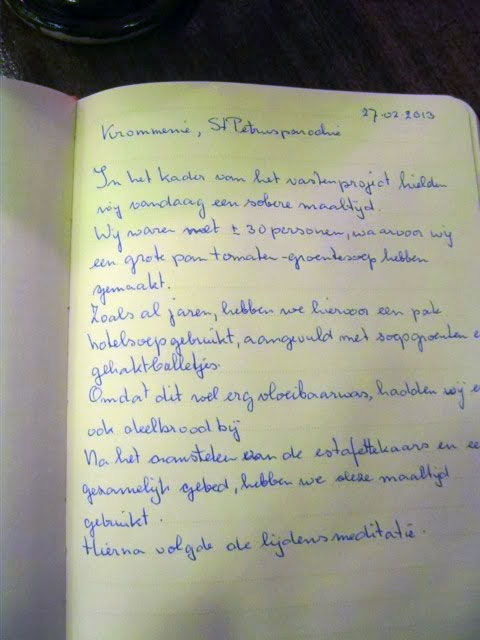 27-02-2013
Krommenie, St Petrusparochie
In het kader van het vastenproject hielden
wij vandaag een sobere maaltijd.
Wij waren met ± 30 personen, waarvoor wij
een grote pan tomaten-groentesoep hebben
gemaakt.
Zoals al jaren, hebben we hiervoor een pak
hotelsoep gebruikt, aangevuld met soepgroenten e
gehaktballetjes.
Omdat dit wel erg vloeibaar was, hadden wij e
ook deelbrood bij
Na het aansteken van de estafettekaars en ee
gezamelijk gebed, hebben we deze maaltijd
gebruikt.
Hierna volgde de lijdensmeditatie.